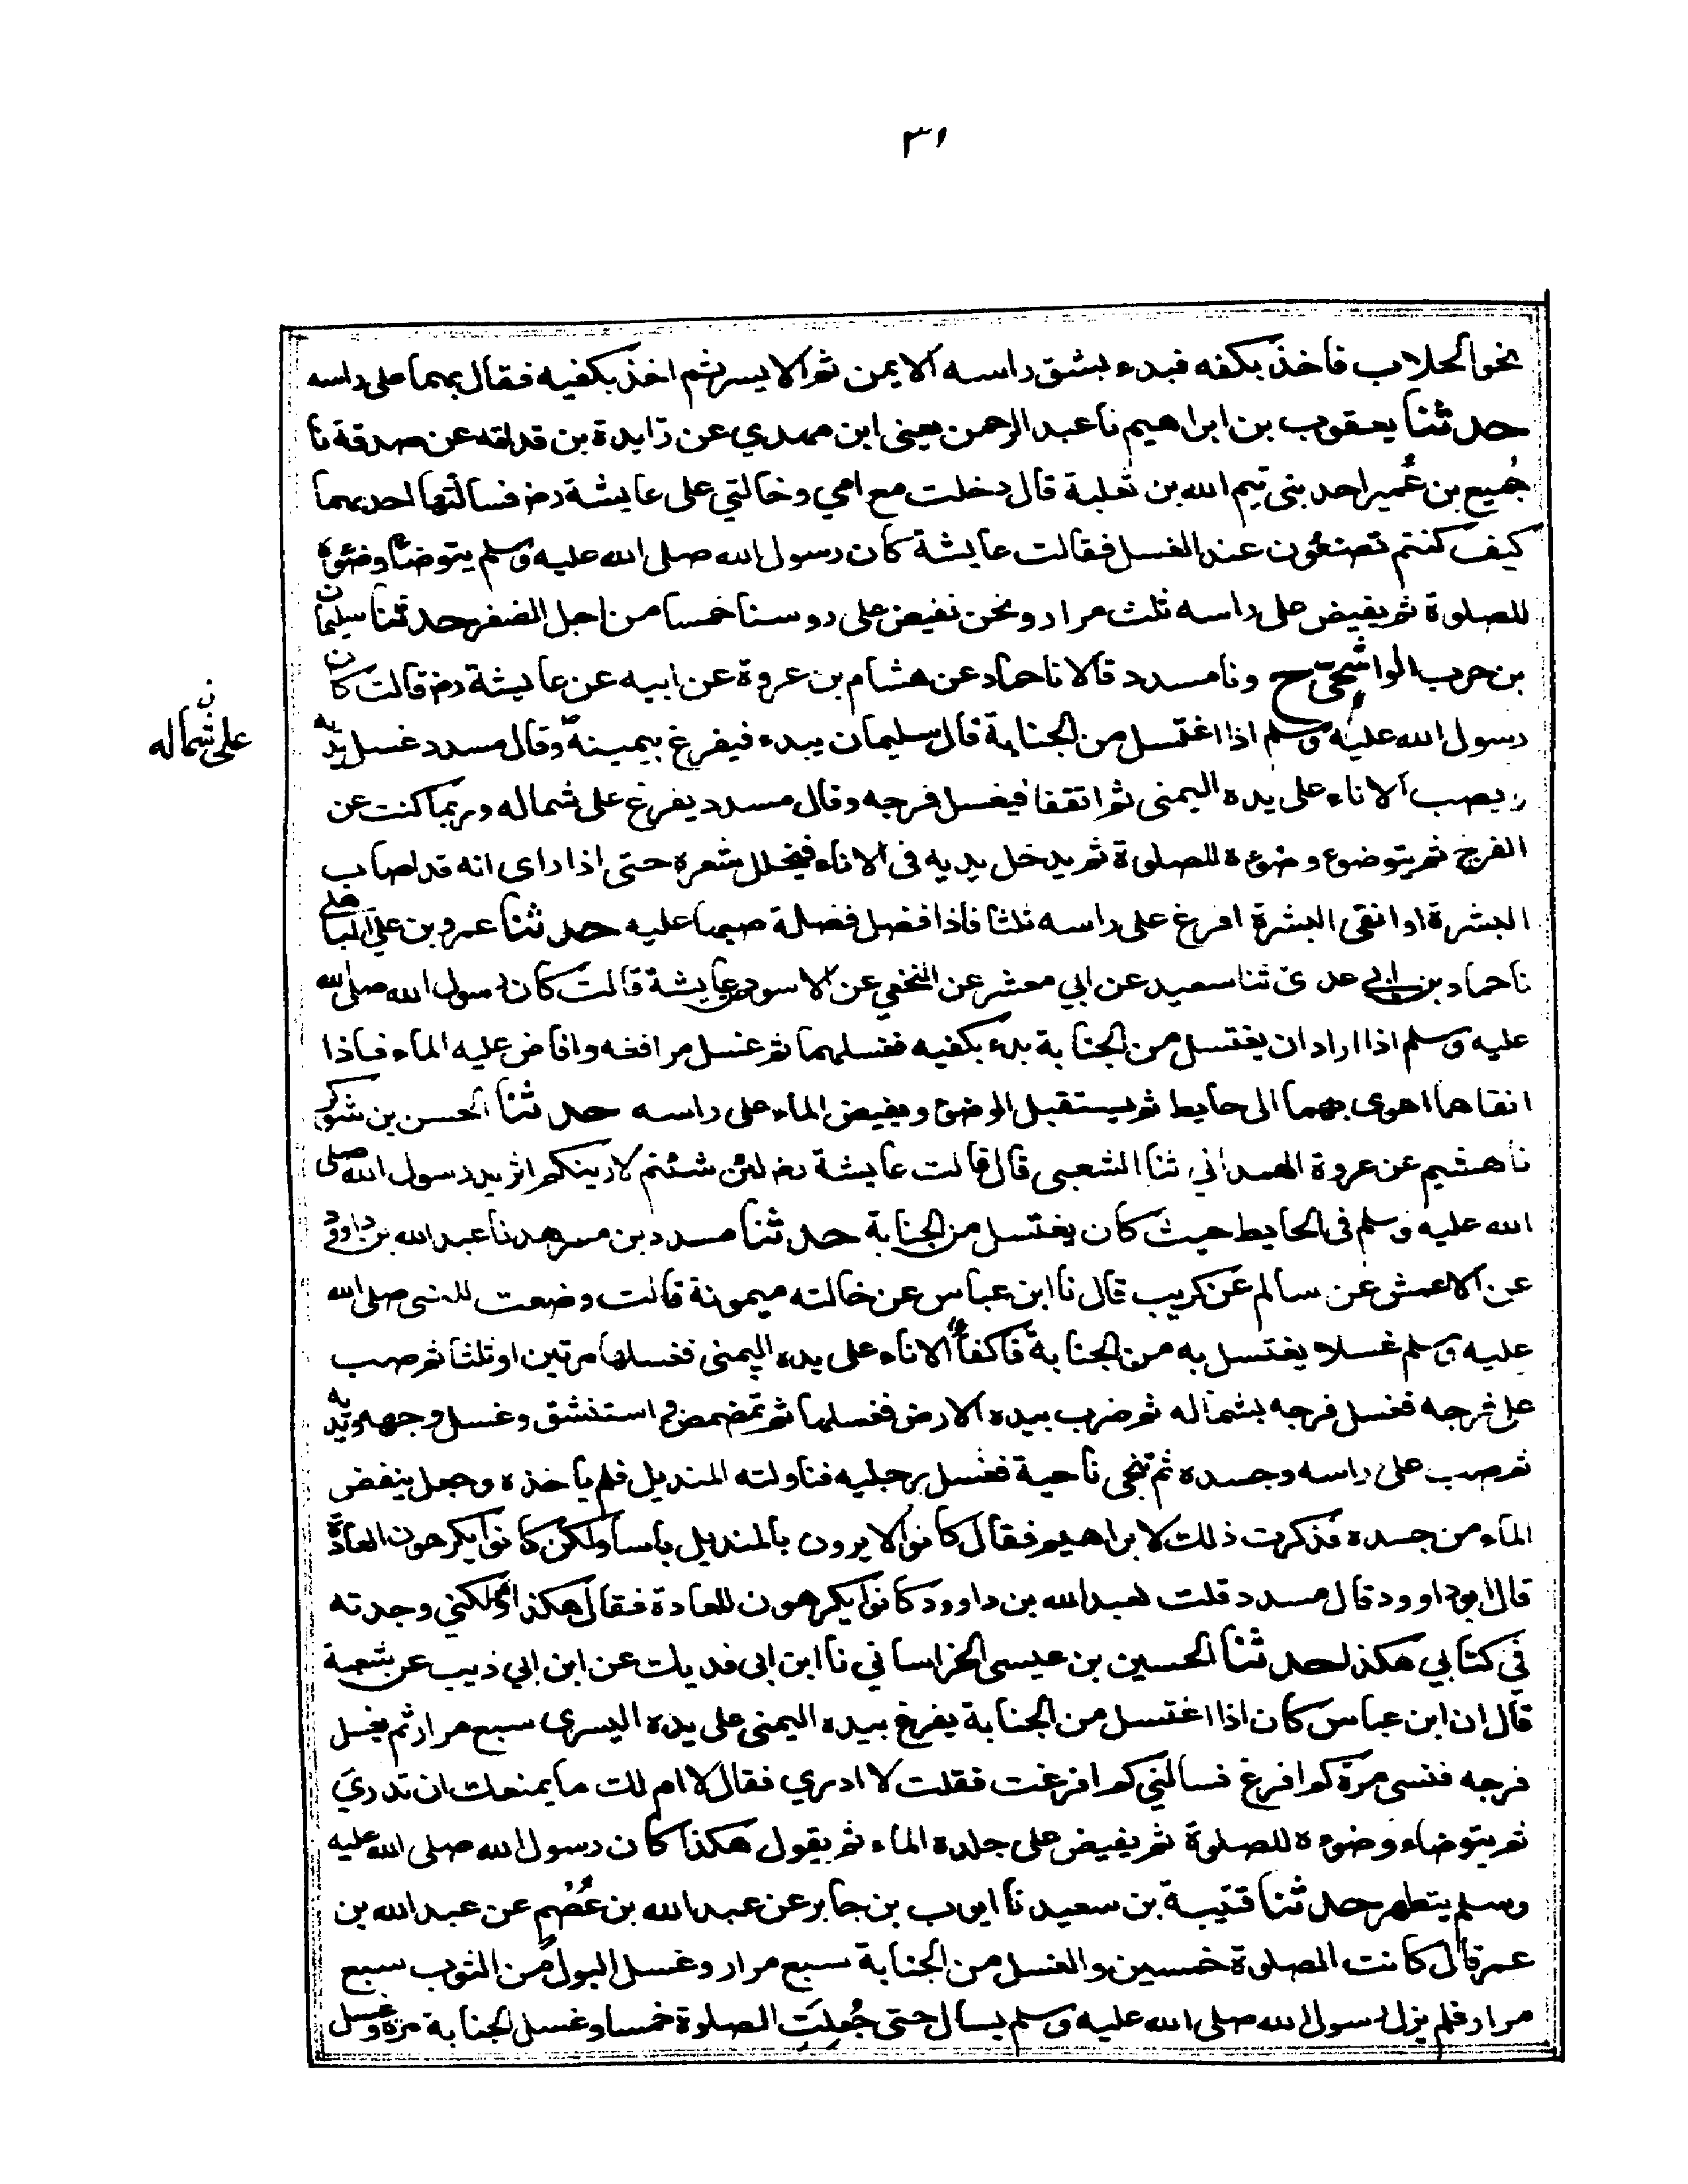 ٣١
نحو الحلاب فاخذ بكفه فبدء بشق راسه الايمن ثم الايسر ثم اخذ بكفيه فقال بهما على راسه
حدثنا يعقوب بن ابراهيم نا عبد الرحمن يعنى ابن مهدي عن زايدة بن قدامه عن صدقة نا
جُميع بن عُمير احد بنى تيم الله بن ثعلبة قال دخلت مع امي وخالتي على عايشة رضـ فسالتها احديهما
كيف كنتم تصنعون عند الغسل فقالت عايشة كان رسول الله صلى الله عليه وسلم يتوضأ وضوءه
للصلوة ثم يفيض على راسه ثلث مرار ونحن نفيض على روسنا خمسا من اجل الضفر حدثنا سليمان
بن حرب الواشحي ح ونا مسدد قالا نا حماد عن هشام بن عروة عن ابيه عن عايشة رضـ قالت كان
رسول الله عليه وسلم اذا اغتسل من الجنابة قال سليمان يبدء فيفرغ بيمينه وقال مسدد غسل يديه
على شماله
ن
يصب الاناء على يده اليمنى ثم اتفقا فيغسل فرجه وقال مسدد يفرغ على شماله وربما كنت عن
الفرج ثم يتوضوء وضوءه للصلوة ثم يدخل يديه فى الاناء فيخلل شعره حتى اذا راى انه قد اصاب
البشرة او انقى البشرة افرغ على راسه ثلثا فاذا فضل فضلة صبها عليه حدثنا عمرو بن على الباهلي
نا حماد بن ابي عدى ثنا سعيد عن ابي معشر عن النخعي عن الاسود عن عايشة قالت كان رسول الله صلى الله
عليه وسلم اذا اراد ان يغتسل من الجنابة بدء بكفيه فغسلهما ثم غسل مرافغه وافاض عليه الماء فاذا
انقاهما اهوى بهما الى حايط ثم يستقبل الوضوء ويفيض الماء على راسه حدثنا الحسن بن شوكر
نا هشيم عن عروة الهمداني ثنا الشعبى قال قالت عايشة رضـ لئن شئتم لارينكم اثر يد رسول الله صلى
الله عليه وسلم فى الحايط حيث كان يغتسل من الجنابة حدثنا مسدد بن مسرهد نا عبد الله بن داوود
عن الاعمش عن سالم عن كريب قال نا ابن عباس عن خالته ميمونة قالت وضعت للنبى صلى الله
عليه وسلم غسلا يغتسل به من الجنابة فاكفأ الاناء على يده اليمنى فغسلها مرتين او ثلثا ثم صب
على فرجه فغسل فرجه بشماله ثم ضرب بيده الارض فغسلها ثم تمضمض واستنشق وغسل وجهه ويديه
ثم صب على راسه وجسده ثم تنحى ناحية فغسل رجليه فناولته المنديل فلم ياخذه وجعل ينفض
الماء من جسده فذكرت ذلك لابراهيم فقال كانوا لا يرون بالمنديل باسا ولكن كانوا يكرهون العادة
قال ابو داوود قال مسدد قلت لعبد الله بن داوود كانوا يكرهون للعادة فقال هكذا هو لكني وجدته
فى كتابي هكذا حدثنا الحسين بن عيسى الخراساني نا ابن ابى فديك عن ابن ابي ذيب عن شعبة
قال ان ابن عباس كان اذا اغتسل من الجنابة يفرغ بيده اليمنى على يده اليسرى سبع مرار ثم يغسل
فرجه فنسى مرة كم افرغ فسالني كم افرغت فقلت لا ادري فقال لا ام لك ما يمنعك ان تدري
ثم يتوضاء وضوءه للصلوة ثم يفيض على جلده الماء ثم يقول هكذا كان رسول الله صلى الله عليه
وسلم يتطهر حدثنا قتيبة بن سعيد نا ايوب بن جابر عن عبد الله بن عُصْم عن عبد الله بن
عمر قال كانت الصلوة خمسين والغسل من الجنابة سبع مرار وغسل البول من الثوب سبع
مرار فلم يزل رسول الله صلى الله عليه وسلم يسال حتى جُعلَت الصلوة خمسا وغسل الجنابة مرة وغسل